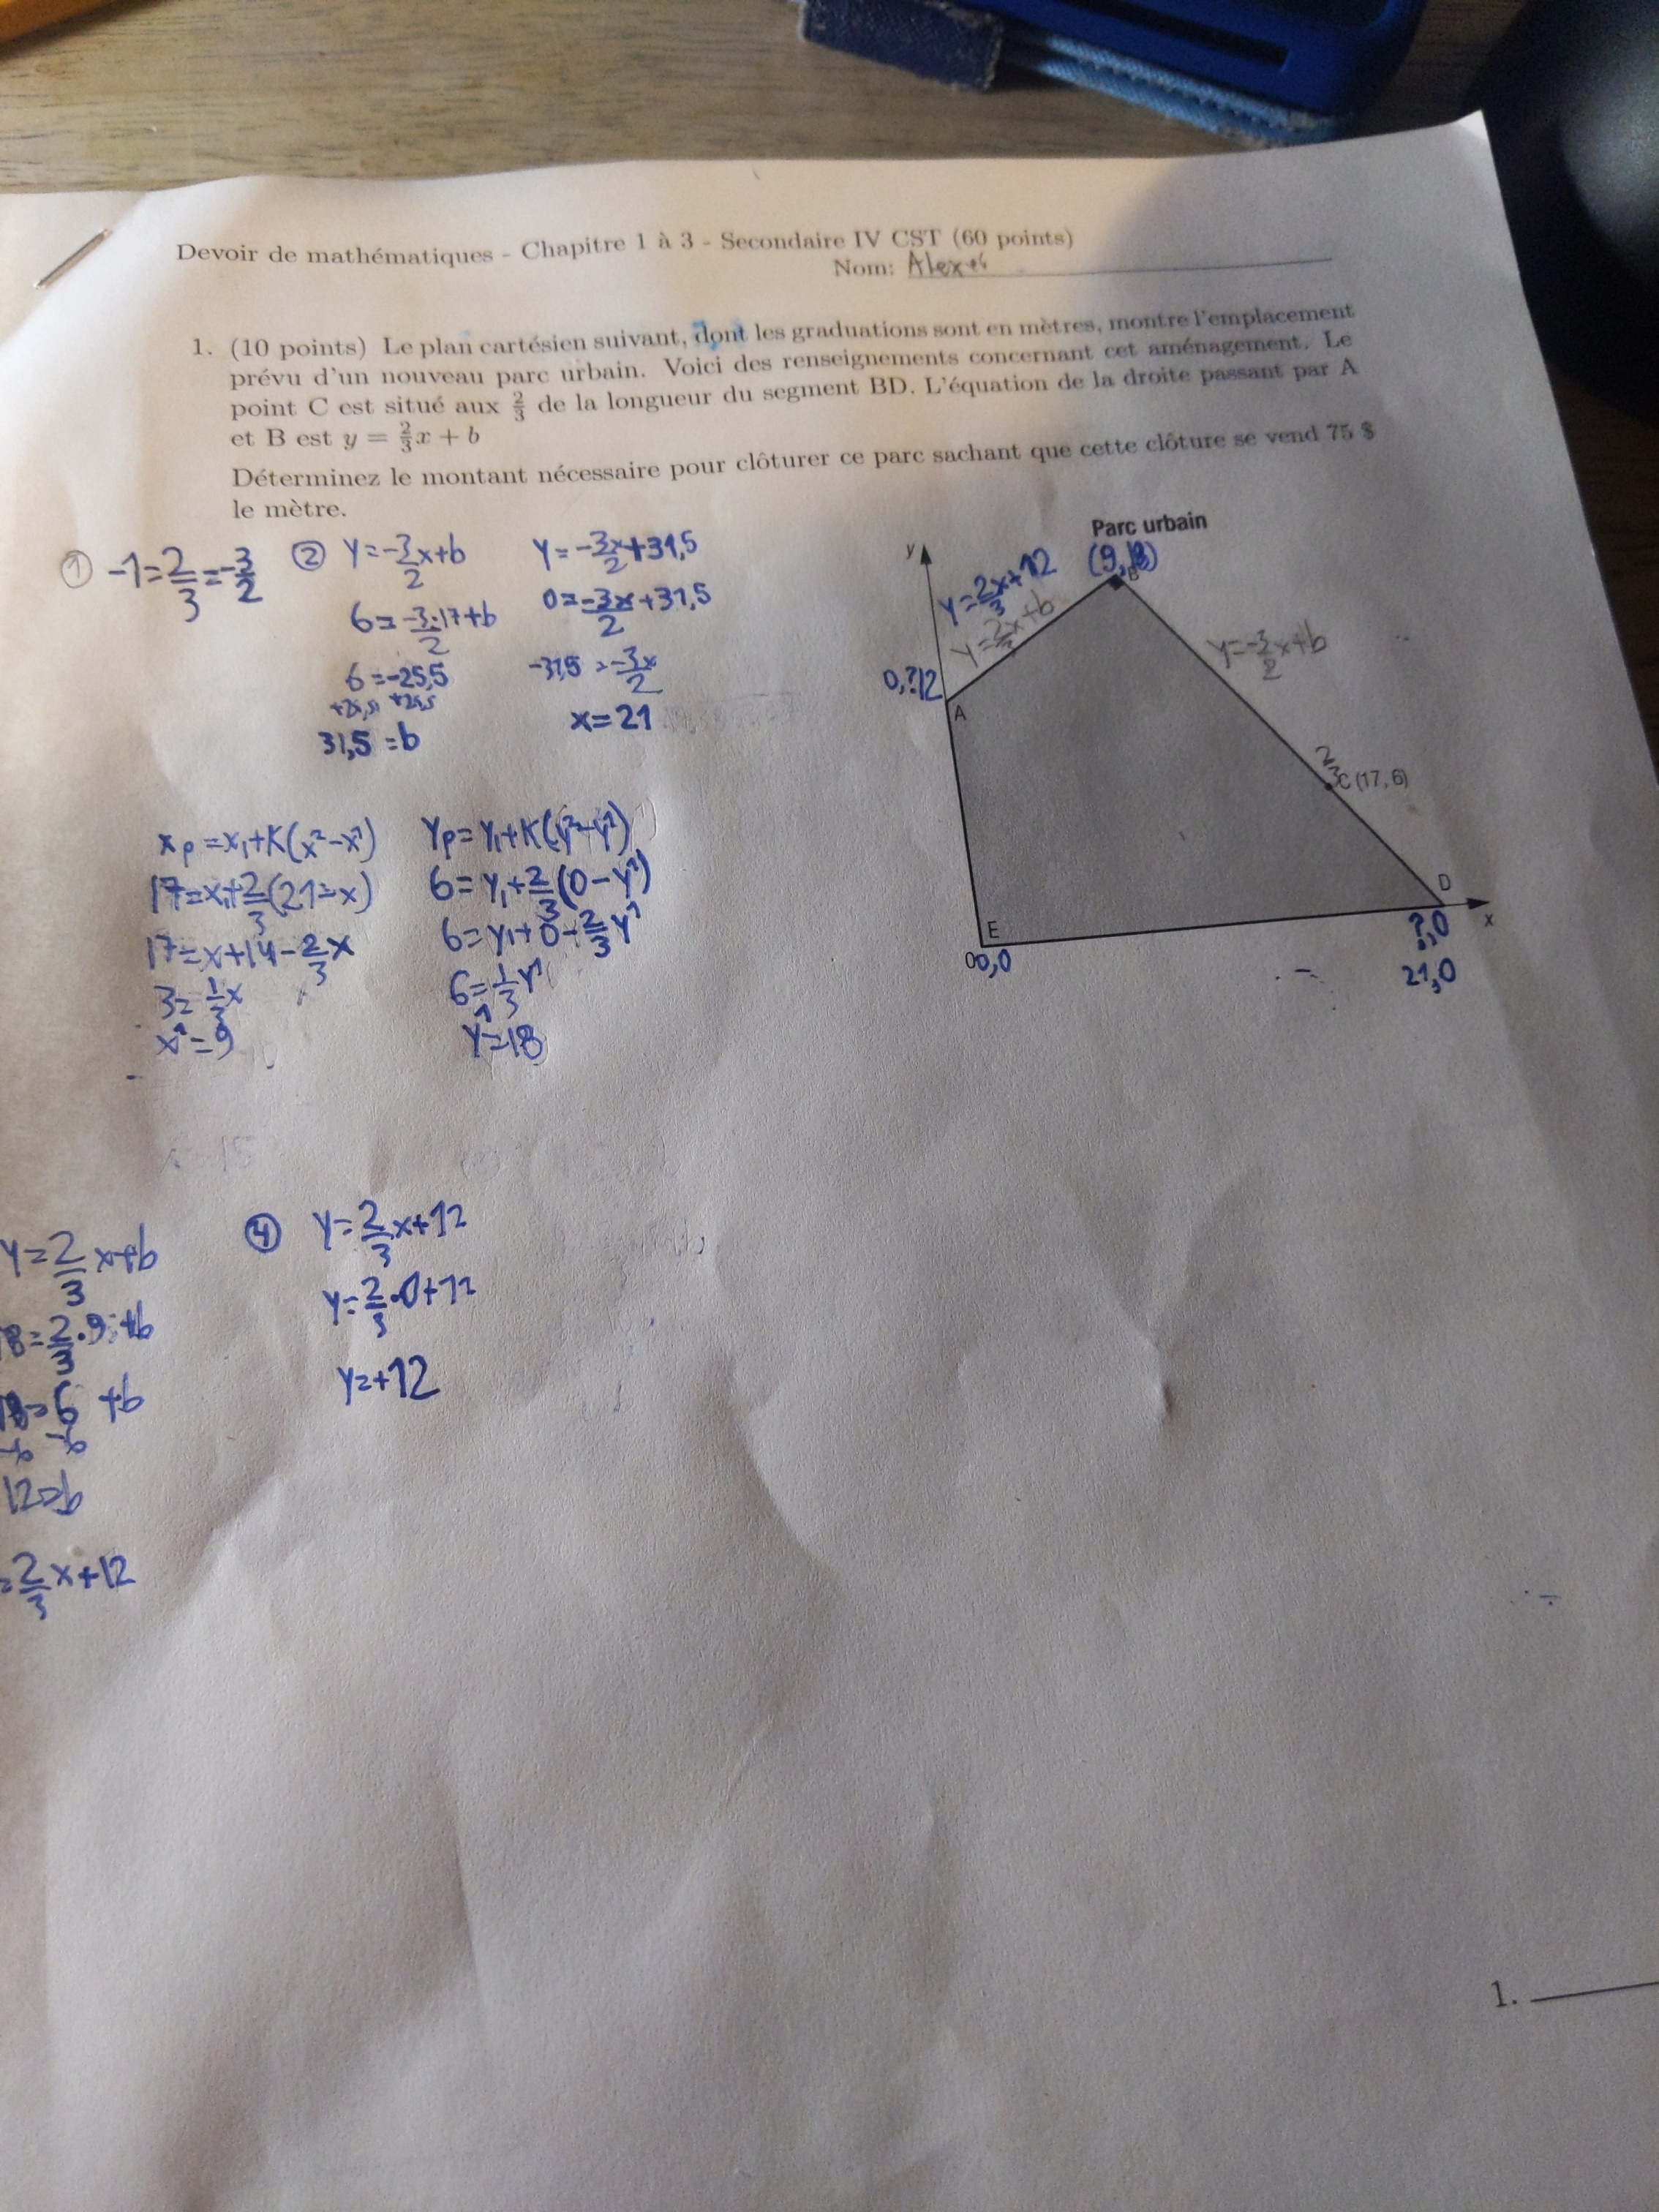 Devoir de mathématiques - Chapitre 1 à 3 - Secondaire IV CST (60 points)
Nom:
1. (10 points) Le plan cartésien suivant, dont les graduations sont en mètres, montre l'emplacement
prévu d'un nouveau parc urbain. Voici des renseignements concernant cet aménagement. Le
point C est situé aux 2/3 de la longueur du segment BD. L'équation de la droite passant par A
et B est y = 2/3x + b
Déterminez le montant nécessaire pour clôturer ce parc sachant que cette clôture se vend 75 $
le mètre.
① -1÷2/3=-3/2
② y=-3/2x+b
6=-3·17/2+b
6=-25,5
+25,5 +25,5
31,5=b
y=-3x/2+31,5
0=-3x/2+31,5
-31,5=-3x/2
x=21
Parc urbain
y
(9,18)
B
y=2x/3+12
y=2/3x+b
y=-3/2x+b
0,?12
A
2/3
C (17, 6)
D
x
E
0
0,0
?,0
21,0
xp=x1+K(x²-x¹)
17=x1+2/3(21-x)
17=x+14-2/3x
3=1/3x
x¹=9
yp=y1+K(y²-y¹)
6=y1+2/3(0-y¹)
6=y1+0-2/3y¹
6=1/3y¹
y¹=18
y=2/3x+b
18=2/3·9+b
18=6+b
12=b
=2/3x+12
④ y=2/3x+12
y=2/3·0+12
y=+12
1.